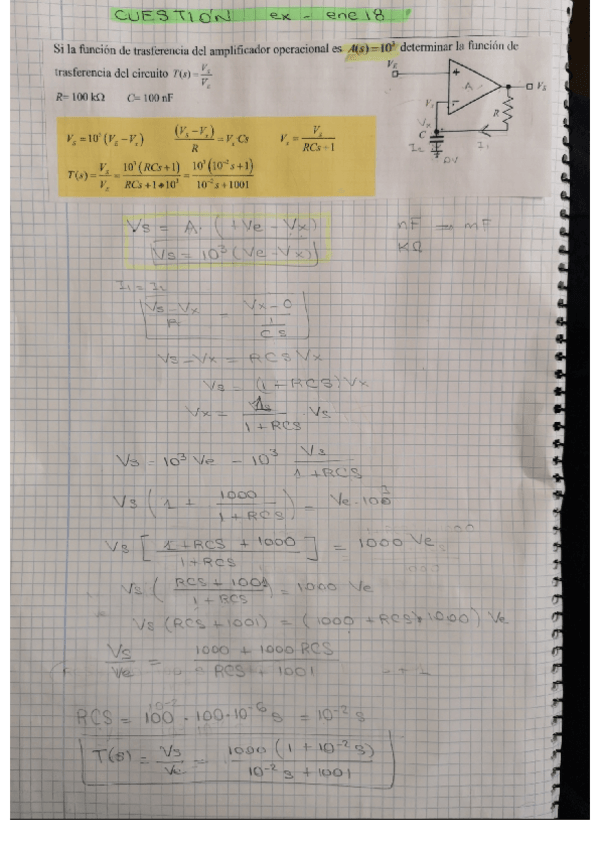 CUESTIÓN ex - ene 18
Si la función de trasferencia del amplificador operacional es A(s)=10³ determinar la función de
trasferencia del circuito T(s) = Vs/VE
R= 100 kΩ C= 100 nF
VE
+
A
-
Vs
Vx
R
C
I2
I1
0V
Vs = 10³ (VE - Vx) (Vs - Vx)/R = Vx Cs Vx = Vs/(RCs+1)
T(s) = Vs/VE = 10³(RCs+1)/(RCs+1+10³) = 10³(10⁻²s+1)/(10⁻²s+1001)
Vs = A· (+Ve - Vx)
Vs = 10³ (Ve - Vx)
nF → mF
KΩ
I1 = I2
(Vs - Vx)/R = (Vx - 0)/(1/CS)
Vs - Vx = RCS Vx
Vs = (1 + RCS) Vx
Vx = 1/(1 + RCS) · Vs
Vs = 10³ Ve - 10³ Vs/(1 + RCS)
Vs (1 + 1000/(1 + RCS)) =
Vs [(1 + RCS + 1000)/(1 + RCS)] = 1000 Ve
Vs ((RCS + 1001)/(1 + RCS)) = 1000 Ve
Vs (RCS + 1001) = (1000 + RCS · 1000) Ve
Vs/Ve = (1000 + 1000 RCS)/(RCS + 1001)
RCS = 100 · 100·10⁻⁶ s = 10⁻² s
T(s) = Vs/Ve = 1000 (1 + 10⁻² s)/(10⁻² s + 1001)